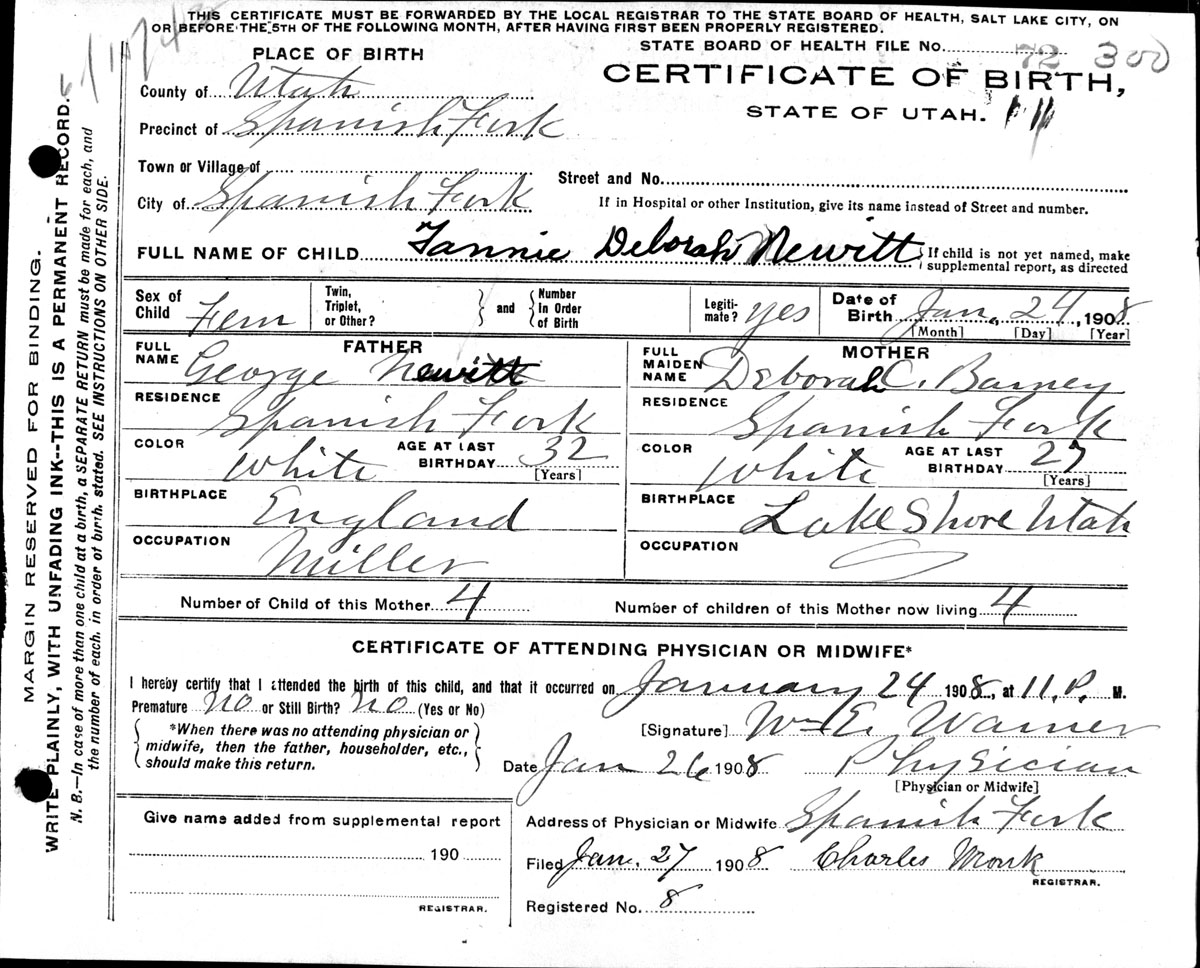 THIS CERTIFICATE MUST BE FORWARDED BY THE LOCAL REGISTRAR TO THE STATE BOARD OF HEALTH, SALT LAKE CITY, ON
OR BEFORE THE 5TH OF THE FOLLOWING MONTH, AFTER HAVING FIRST BEEN PROPERLY REGISTERED.
STATE BOARD OF HEALTH FILE No. 72 300
PLACE OF BIRTH
CERTIFICATE OF BIRTH,
STATE OF UTAH.
County of Utah
Precinct of Spanish Fork
Town or Village of
Street and No.
City of Spanish Fork
If in Hospital or other Institution, give its name instead of Street and number.
FULL NAME OF CHILD Fannie Deborah Newitt {If child is not yet named, make supplemental report, as directed
Sex of Child Fem
Twin, Triplet, or Other? } and { Number In Order of Birth
Legiti-mate? yes
Date of Birth Jan. 24, 1908
[Month] [Day] [Year]
FATHER
FULL NAME George Newitt
RESIDENCE Spanish Fork
COLOR White AGE AT LAST BIRTHDAY 32 [Years]
BIRTHPLACE England
OCCUPATION Miller
MOTHER
FULL MAIDEN NAME Deborah C. Barney
RESIDENCE Spanish Fork
COLOR White AGE AT LAST BIRTHDAY 27 [Years]
BIRTHPLACE Lake Shore Utah
OCCUPATION
Number of Child of this Mother 4 Number of children of this Mother now living 4
CERTIFICATE OF ATTENDING PHYSICIAN OR MIDWIFE*
I hereby certify that I attended the birth of this child, and that it occurred on January 24 1908, at 11.P. M.
Premature no or Still Birth? no (Yes or No)
{*When there was no attending physician or midwife, then the father, householder, etc., should make this return.}
[Signature] Wm E. Warner
Date Jan 26 1908 Physician
[Physician or Midwife]
Give name added from supplemental report
190
REGISTRAR.
Address of Physician or Midwife Spanish Fork
Filed Jan. 27 1908 Charles Monk
REGISTRAR.
Registered No. 8
MARGIN RESERVED FOR BINDING.
WRITE PLAINLY, WITH UNFADING INK--THIS IS A PERMANENT RECORD.
N. B.—In case of more than one child at a birth, a SEPARATE RETURN must be made for each, and
the number of each, in order of birth, stated. SEE INSTRUCTIONS ON OTHER SIDE.